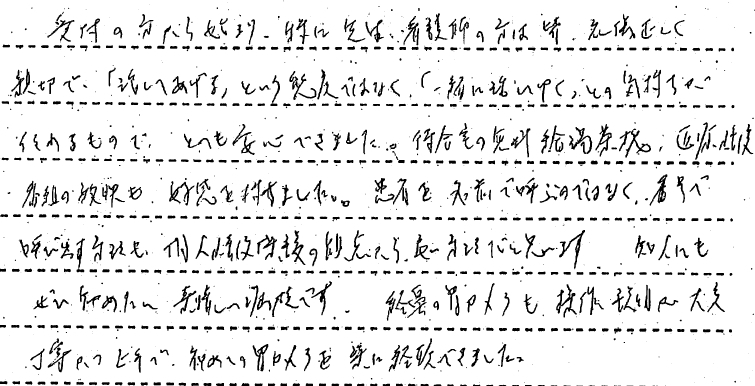 受付の方から始まり、特に先生、看護師の方は皆、礼儀正しく
親切で、「治してあげる」という態度ではなく、「一緒に治していく」との気持ちが
伝わるもので、とても安心できました。待合室の無料給湯茶機、医療情報
番組の放映も、好感を持ちました。患者を名前で呼ぶのではなく、番号で
呼び出す方法も、個人情報保護の観点から良い方法だと思います 知人にも
ぜひ勧めたい素晴しい病院です。 経鼻の胃カメラも操作、説明が大変
丁寧かつ上手で、初めての胃カメラを楽に経験できました。